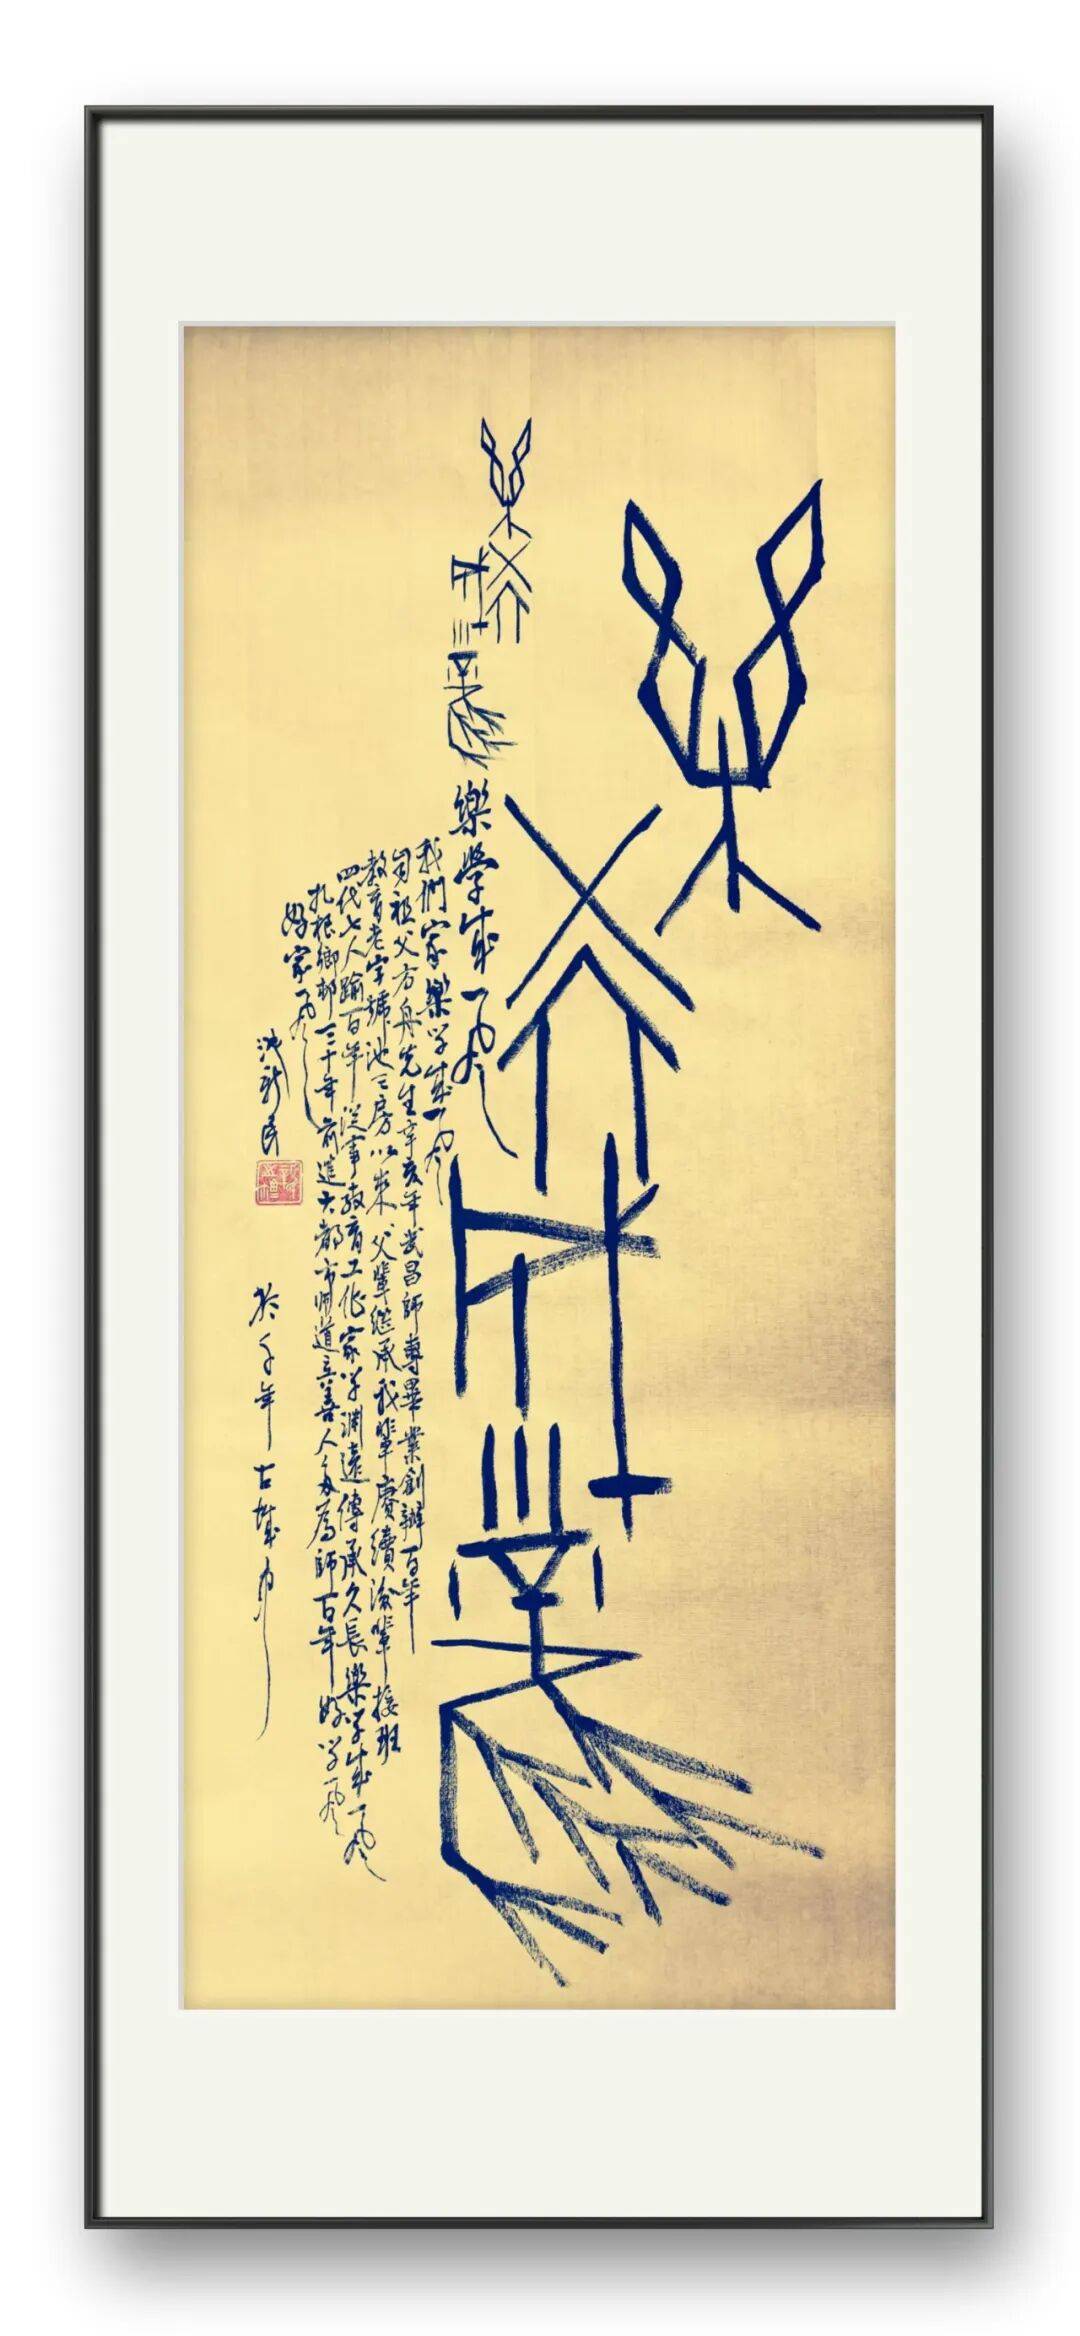 樂學成風
樂學成風
樂學成風
我們家樂学成风
自祖父方舟先生辛亥年武昌師專畢業創辦百年
教育老字號池三房以來父輩繼承我輩賡續後輩接班
四代七人踰百年從事教育工作家学淵遠傳承久長樂学成风
扎根鄉邨三十年前進大都市師道立善人多為師百年好学风
好家风
池新民
於千年古城